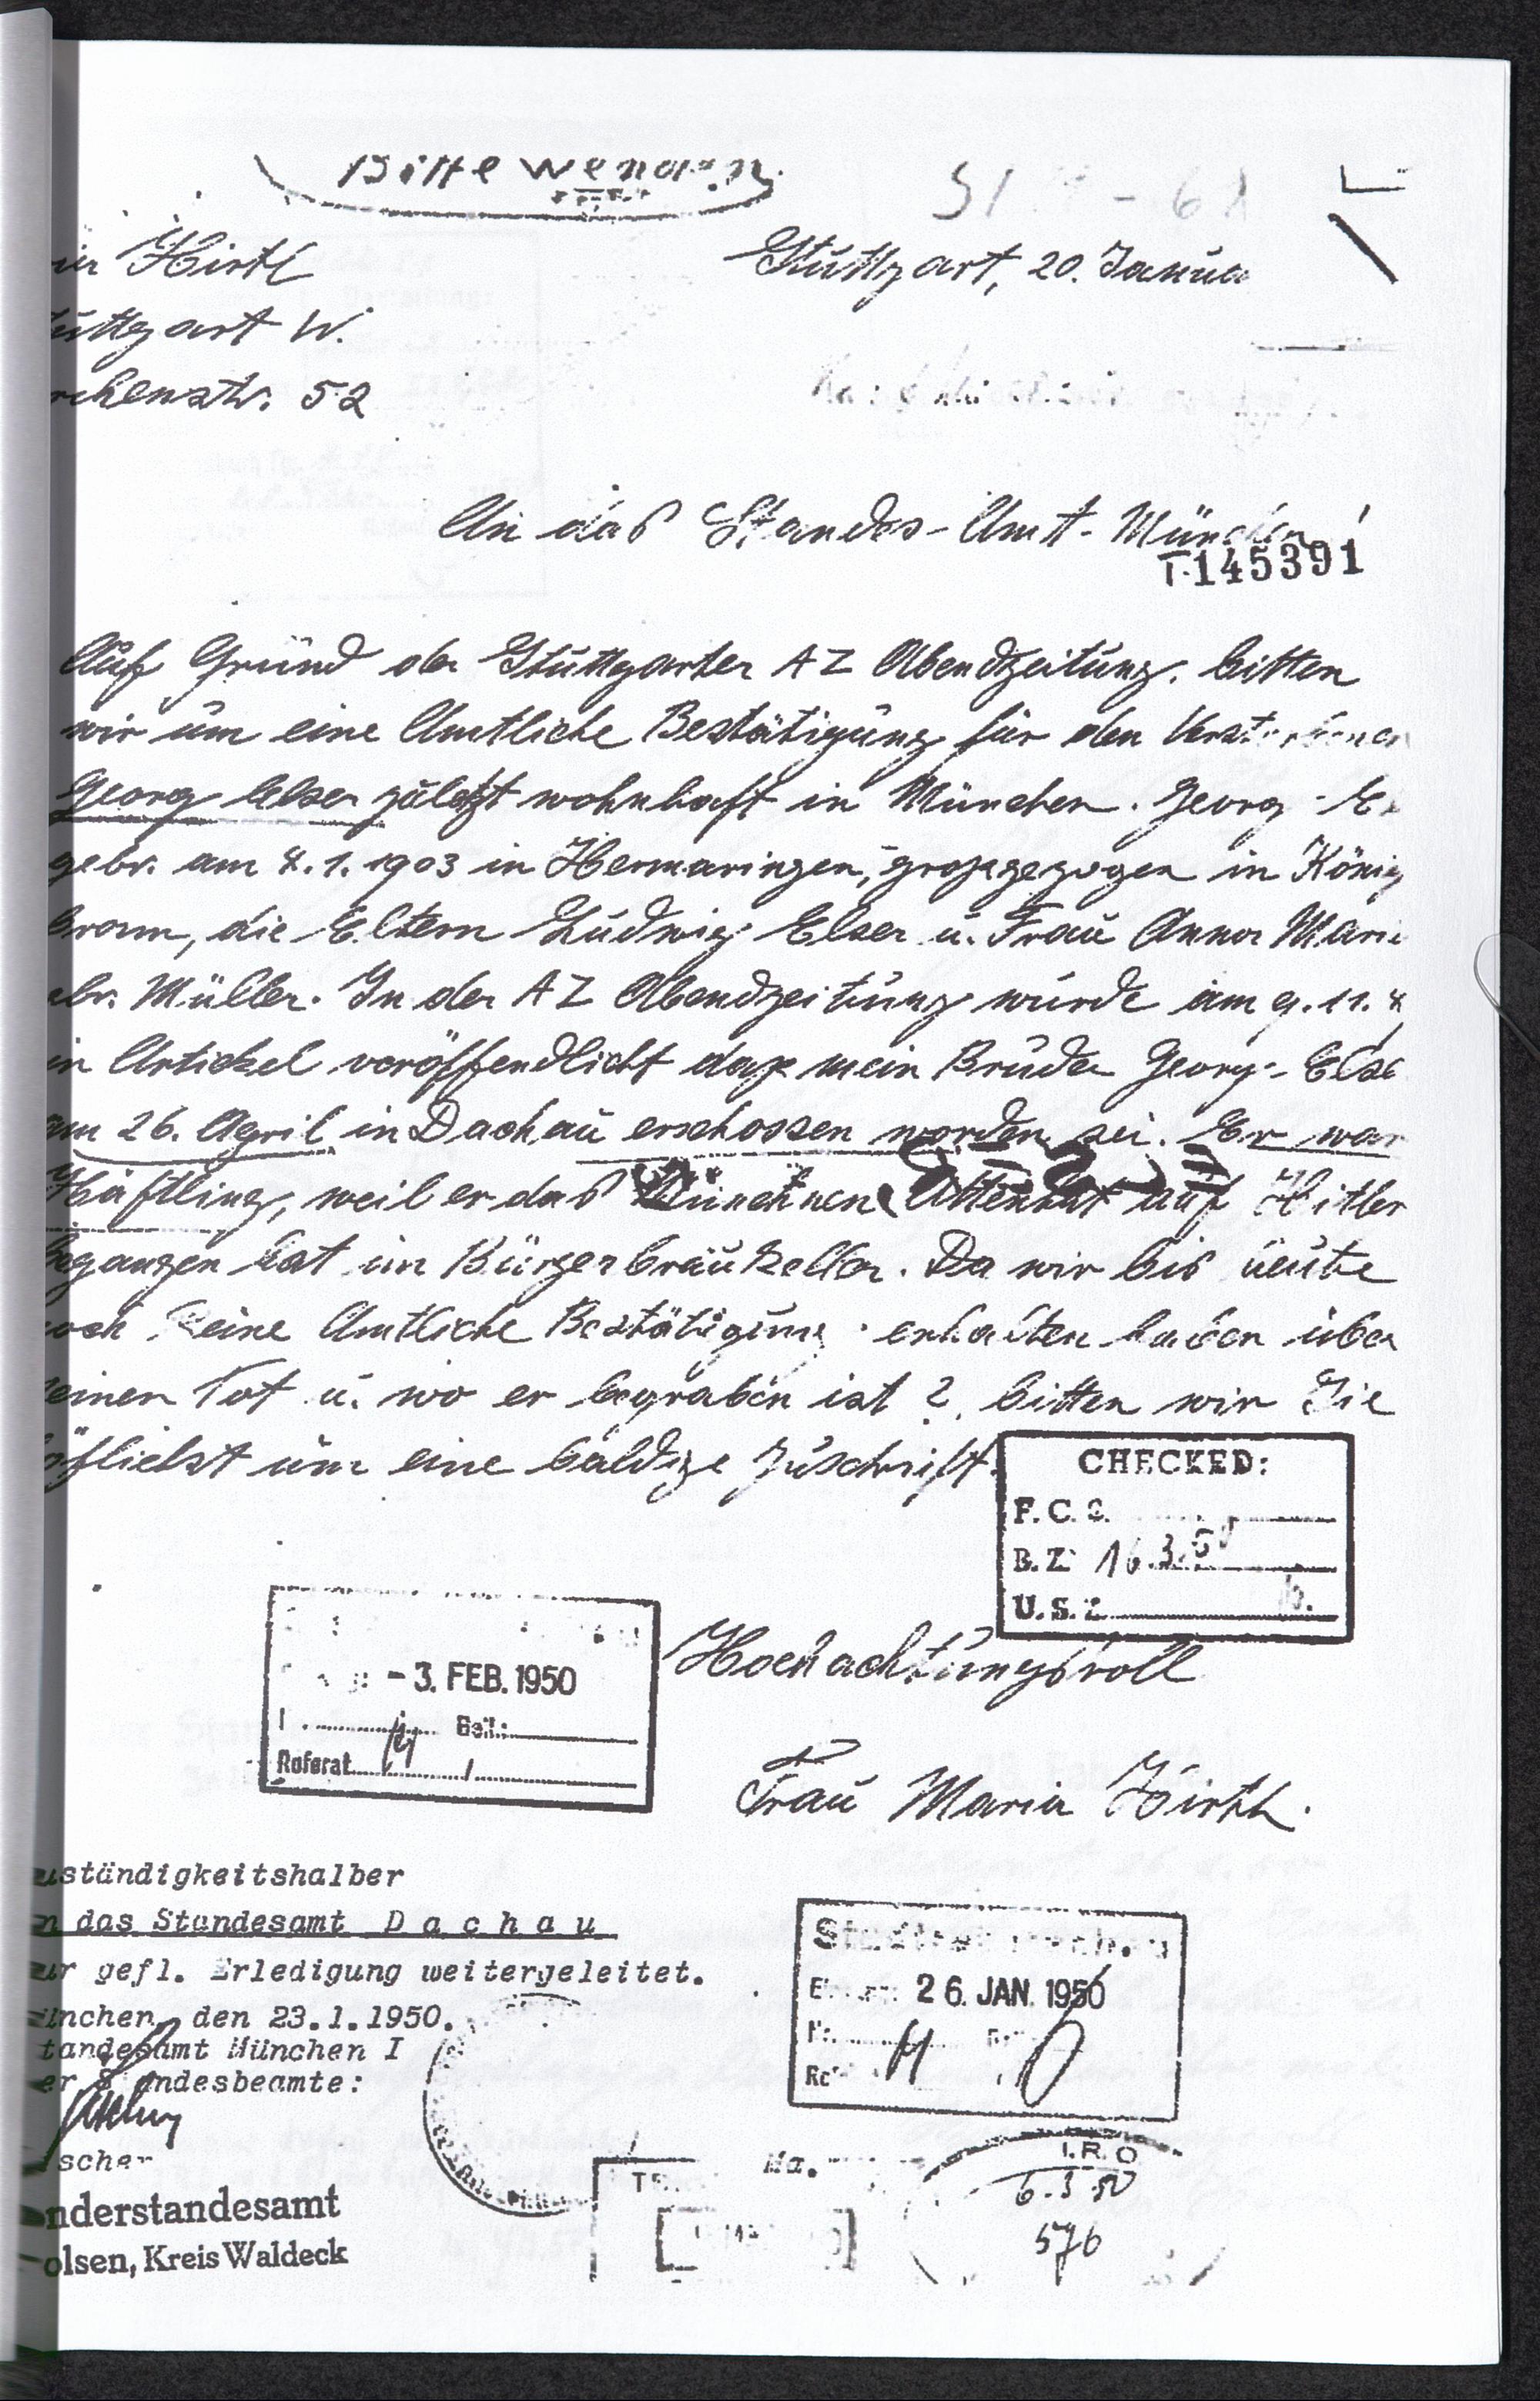 Bitte wenden
Hirth
Stuttgart, 20. Janua
uttgart W.
rchenstr. 52
An das Standes-Amt-München!
T-145391
Auf Grund der Stuttgarter AZ Abendzeitung. bitten
wir um eine Amtliche Bestätigung für den Verstorbenen
Georg Elser zuletzt wohnhaft in München. Georg - E
gebr. am 4.1.1903 in Hermaringen, grossgezogen in König
bronn, die Eltern Ludwig Elser u. Frau Anna Mari
ebr. Müller. In der AZ Abendzeitung wurde am 9.11.4
in Artickel veröffendlicht daß mein Bruder Georg - Else
am 26. April in Dachau erschossen worden sei. Er war
Häftling, weil er das Münchner Attentat auf Hitler
begangen hat im Bürgerbräukeller. Da wir bis heute
och keine Amtliche Bestätigung erhalten haben über
seinen Tot u. wo er begraben ist ?, bitten wir Sie
höflichst um eine baldige Zuschrift.
CHECKED:
F.C.
B.Z. 16.3.50
U.S.
- 3. FEB. 1950
Referat
Hochachtungsvoll
Frau Maria Hirth.
uständigkeitshalber
n das Standesamt Dachau
ur gefl. Erledigung weitergeleitet.
ünchen, den 23.1.1950.
tandesamt München I
er Standesbeamte:
scher
26. JAN. 1950
nderstandesamt
olsen, Kreis Waldeck
I.R.O
6.3.50
576